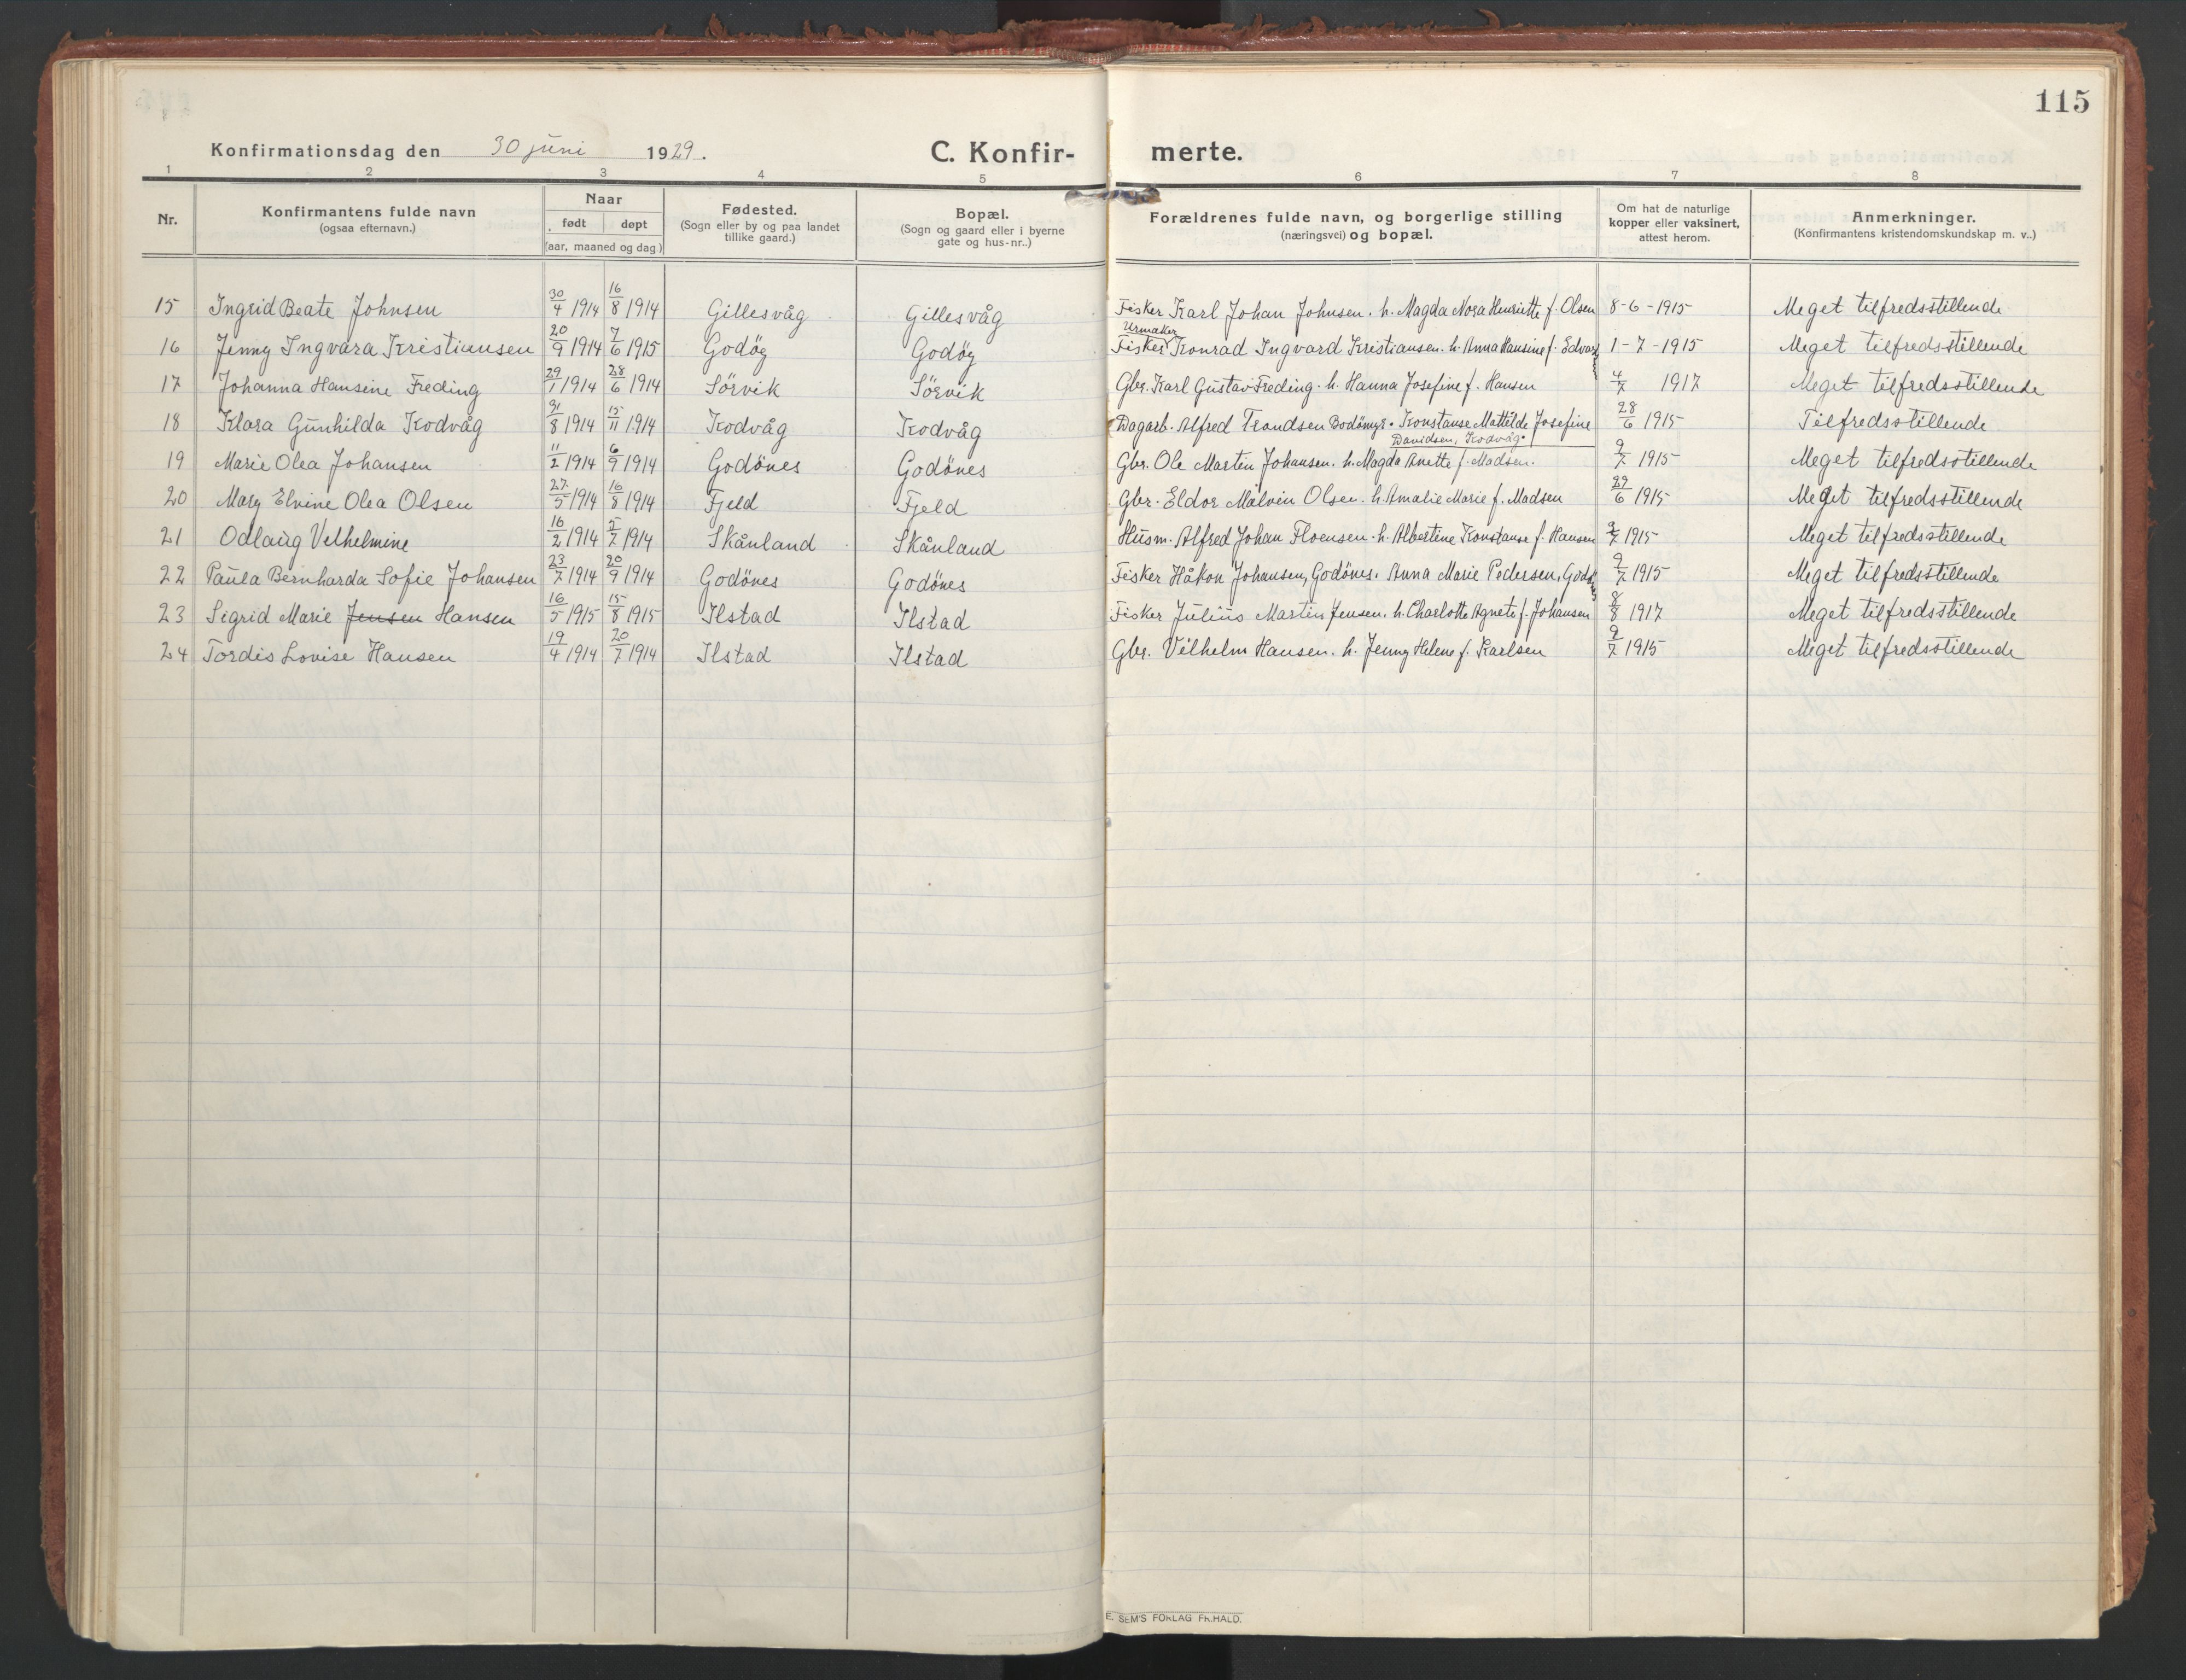 115
Konfirmationsdag den 30 juni 1929.
C. Konfir- merte.
1 2 3 4 5 6 7 8
Nr. Konfirmantens fulde navn (ogsaa efternavn.) Naar født døpt (aar, maaned og dag) Fødested. (Sogn eller by og paa landet tillike gaard.) Bopæl. (Sogn og gaard eller i byerne gate og hus-nr..) Forældrenes fulde navn, og borgerlige stilling (næringsvei) og bopæl. Om hat de naturlige kopper eller vaksinert, attest herom. Anmerkninger. (Konfirmantens kristendomskundskap m. v..)
15 Ingrid Beate Johnsen 30/4 1914 16/8 1914 Gillesvåg Gillesvåg Fisker Karl Johan Johnsen. h. Magda Nora Henriette f. Olsen 8-6-1915 Meget tilfredsstillende
Urmaker
16 Jenny Ingvara Kristiansen 20/9 1914 7/6 1915 Godöy Godöy Fisker Konrad Ingvard Kristiansen. h. Anna Hansine f. 1-7-1915 Meget tilfredsstillende
17 Johanna Hansine Freding 29/1 1914 28/6 1914 Sörvik Sörvik Gbr. Karl Gustav Freding. h. Hanna Josefine f. Hansen 4/7 1917 Meget tilfredsstillende
18 Klara Gunhilda Kodvåg 31/8 1914 15/11 1914 Kodvåg Kodvåg Dagarb. Alfred Trondsen Bodömyr. Konstanse Mathilde Josefine 28/6 1915 Tilfredsstillende
Davidsen, Kodvåg.
19 Marie Olea Johansen 11/2 1914 6/9 1914 Godönes Godönes Gbr. Ole Martin Johansen. h. Magda Anette f. Madsen. 9/7 1915 Meget tilfredsstillende
20 Mary Elvine Olea Olsen 27/5 1914 16/8 1914 Fjeld Fjeld Gbr. Eldor Malvin Olsen. h. Amalie Marie f. Madsen 29/6 1915 Meget tilfredsstillende
21 Odlaug Velhelmine 16/2 1914 5/7 1914 Skånland Skånland Husm. Alfred Johan Floensen. h. Albertine Konstanse f. Hansen 9/7 1915 Meget tilfredsstillende
22 Paula Bernharda Sofie Johansen 23/7 1914 20/9 1914 Godönes Godönes Fisker Håkon Johansen, Godönes. Anna Marie Pedersen, Godönes 9/7 1915 Meget tilfredsstillende
23 Sigrid Marie Jensen Hansen 16/5 1915 15/8 1915 Ilstad Ilstad Fisker Julius Martin Jensen. h. Charlotte Agnete f. Johansen 8/8 1917 Meget tilfredsstillende
24 Tordis Lovise Hansen 19/4 1914 20/7 1914 Ilstad Ilstad Gbr. Vilhelm Hansen. h. Jenny Helene f. Karlsen 9/7 1915 Meget tilfredsstillende
E. SEM'S FORLAG FR.HALD.